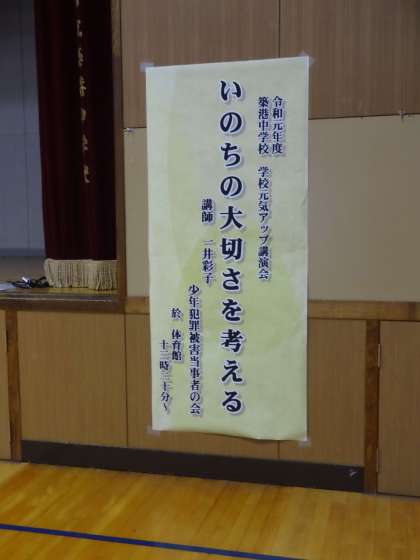 令和元年度
築港中学校 学校元気アップ講演会
いのちの大切さを考える
講師 一井彩子
少年犯罪被害当事者の会
於 体育館
十三時三十分〜